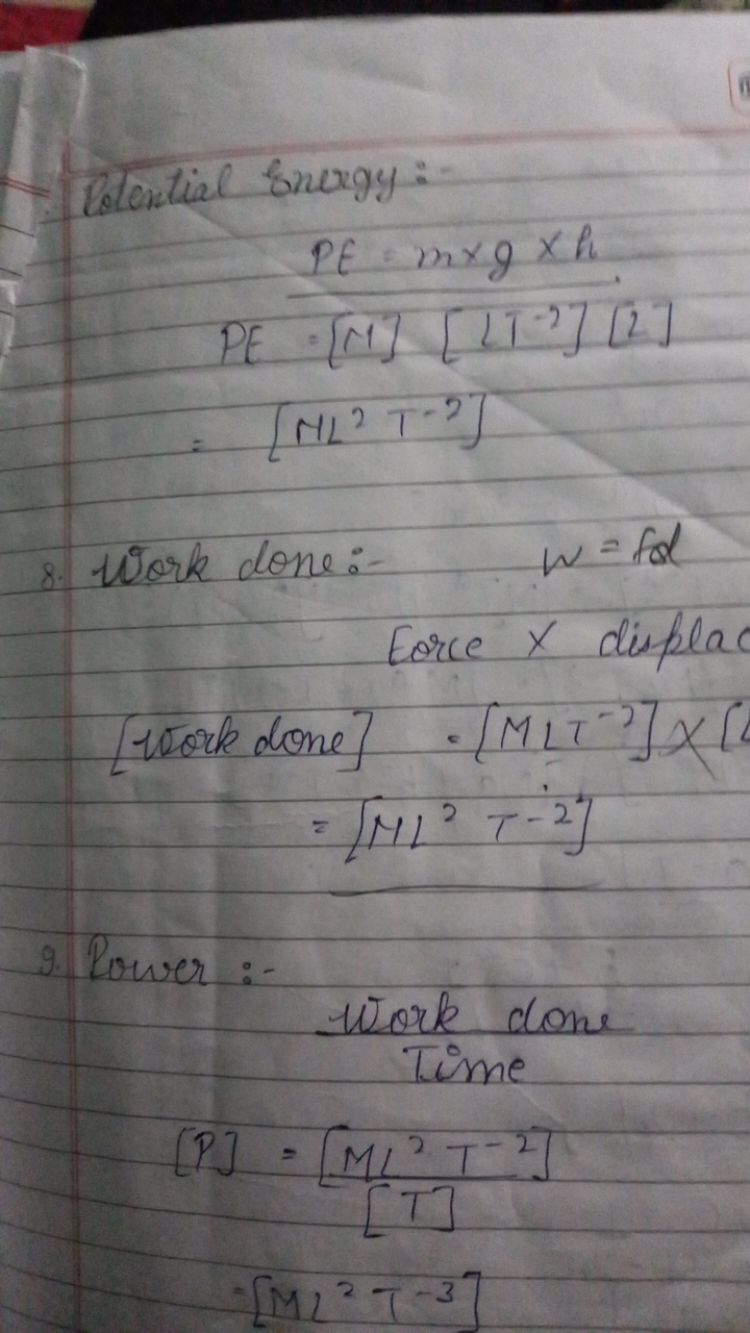 Potential Energy :-
PE = m x g x h
PE = [M] [LT⁻²] [L]
= [ML² T⁻²]
8. Work done :- W = fd
Force X displac
[Work done] = [MLT⁻²] X [L
= [ML² T⁻²]
9. Power :-
Work done
Time
[P] = [ML² T⁻²]
[T]
= [ML² T⁻³]